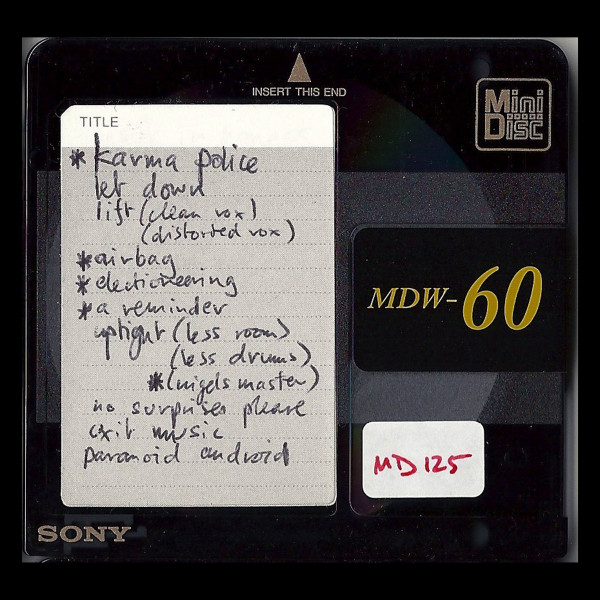 INSERT THIS END
Mini
Disc
TITLE
* karma police
let down
lift (clean vox)
(distorted vox)
* airbag
* electioneering
* a reminder
uptight (less room)
(less drums)
* (nigels master)
no surprises please
exit music
paranoid android
MDW-60
MD125
SONY